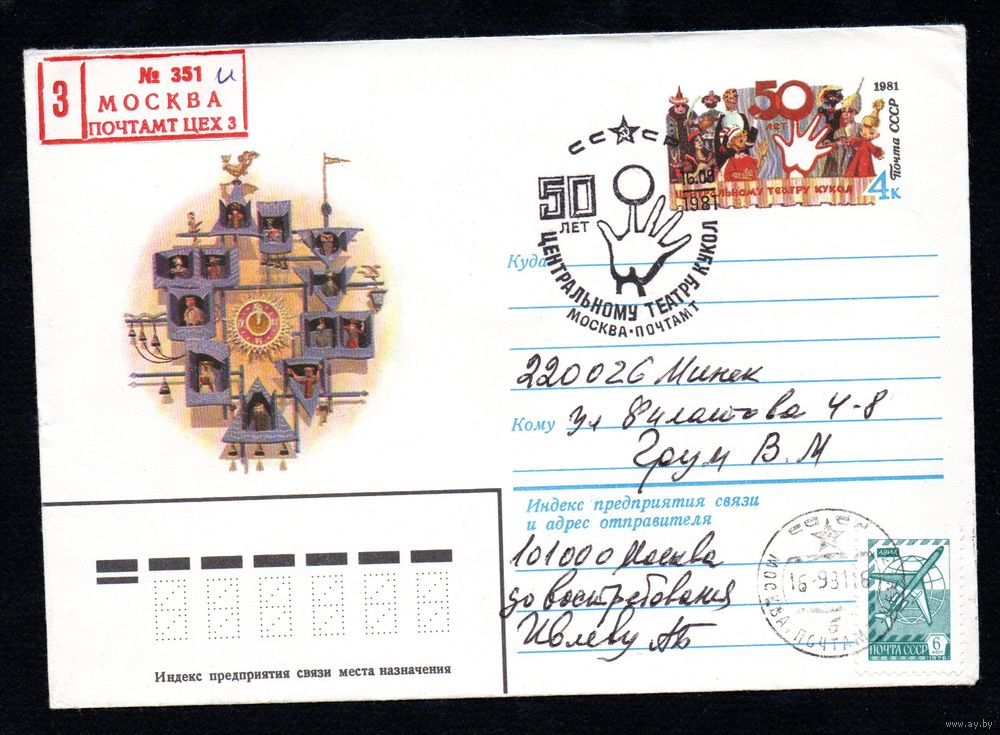 З
№ 351 и
МОСКВА
ПОЧТАМТ ЦЕХ 3
50
ЛЕТ
ЦЕНТРАЛЬНОМУ ТЕАТРУ КУКОЛ
1981
Почта СССР
4К
СССР
50
ЛЕТ
16.09
1981
ЦЕНТРАЛЬНОМУ ТЕАТРУ КУКОЛ
МОСКВА·ПОЧТАМТ
Куда
220026 Минск
Кому ул Филатова 4-8
Грум В. М
Индекс предприятия связи
и адрес отправителя
101000 Москва
до востребования
Ивлеву АБ
СССР
16-9 81 18
МОСКВА-ПОЧТАМТ
6
АВИА
ПОЧТА СССР
6
КОП
Индекс предприятия связи места назначения
www.ay.by